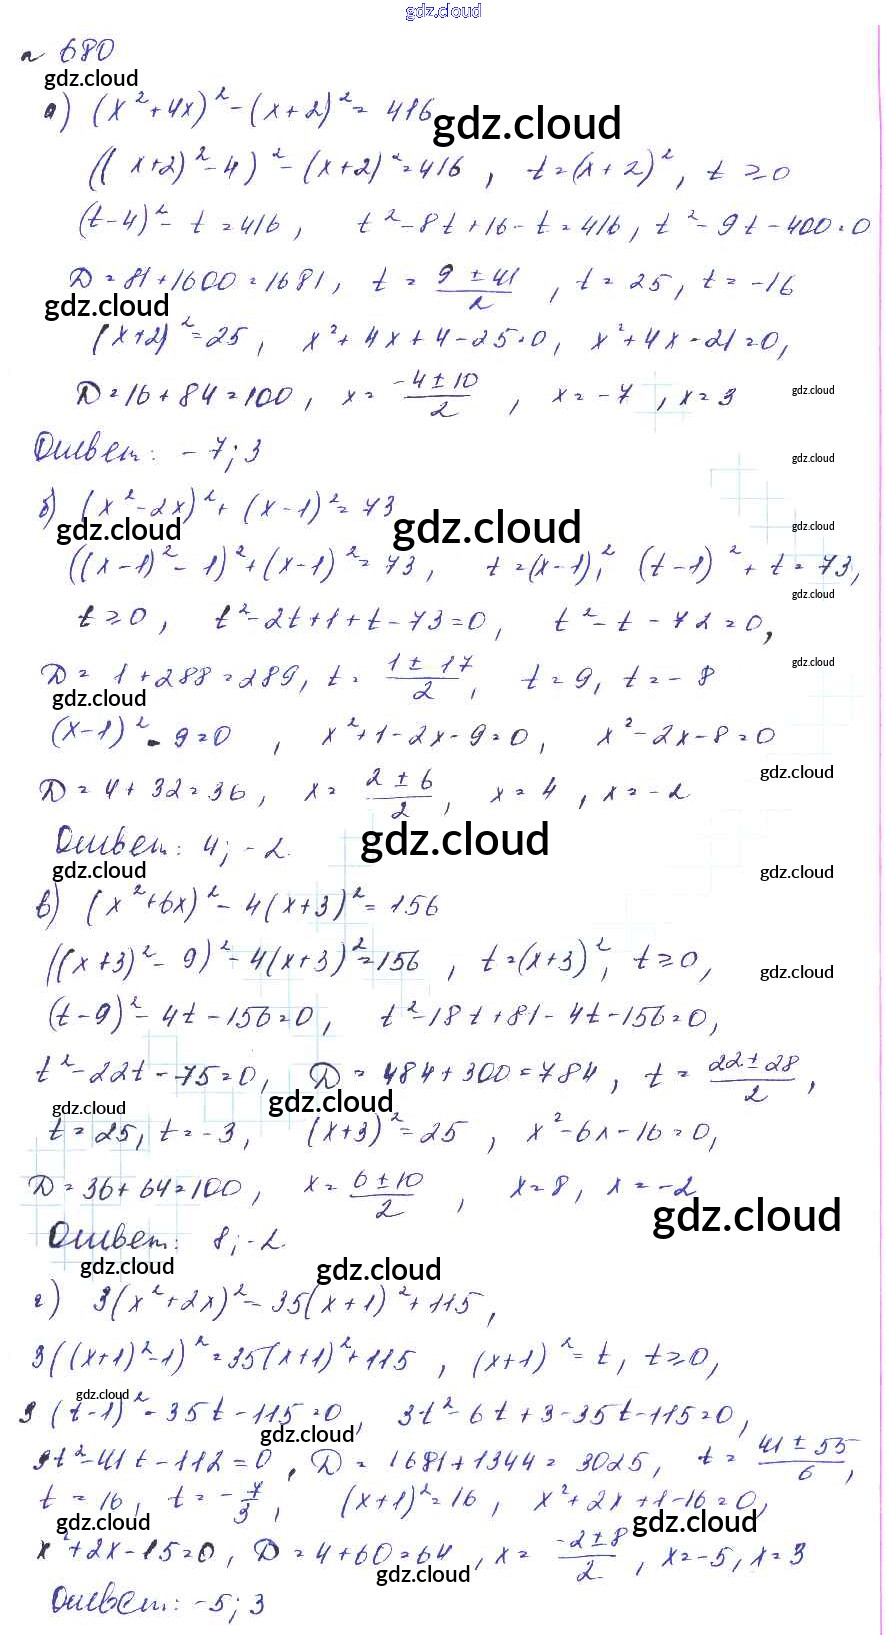 gdz.cloud
n 680
gdz.cloud
а) (x²+4x)² - (x+2)² = 416
gdz.cloud
((x+2)² - 4)² - (x+2)² = 416, t = (x+2)², t ≥ 0
(t-4)² - t = 416, t² - 8t + 16 - t = 416, t² - 9t - 400 = 0
D = 81 + 1600 = 1681, t = (9 ± 41)/2, t = 25, t = -16
gdz.cloud
(x+2)² = 25, x² + 4x + 4 - 25 = 0, x² + 4x - 21 = 0,
D = 16 + 84 = 100, x = (-4 ± 10)/2, x = -7, x = 3
gdz.cloud
Ответ: -7; 3
gdz.cloud
б) (x² - 2x)² + (x-1)² = 73
gdz.cloud
gdz.cloud
gdz.cloud
((x-1)² - 1)² + (x-1)² = 73, t = (x-1)², (t-1)² + t = 73,
gdz.cloud
t ≥ 0, t² - 2t + 1 + t - 73 = 0, t² - t - 72 = 0,
gdz.cloud
D = 1 + 288 = 289, t = (1 ± 17)/2, t = 9, t = -8
gdz.cloud
(x-1)² - 9 = 0, x² + 1 - 2x - 9 = 0, x² - 2x - 8 = 0
gdz.cloud
D = 4 + 32 = 36, x = (2 ± 6)/2, x = 4, x = -2
gdz.cloud
Ответ: 4; -2.
gdz.cloud
gdz.cloud
в) (x² + 6x)² - 4(x+3)² = 156
((x+3)² - 9)² - 4(x+3)² = 156, t = (x+3)², t ≥ 0,
gdz.cloud
(t-9)² - 4t - 156 = 0, t² - 18t + 81 - 4t - 156 = 0,
t² - 22t - 75 = 0, D = 484 + 300 = 784, t = (22 ± 28)/2,
gdz.cloud
gdz.cloud
t = 25, t = -3, (x+3)² = 25, x² - 6x - 16 = 0,
D = 36 + 64 = 100, x = (6 ± 10)/2, x = 8, x = -2
gdz.cloud
Ответ: 8; -2.
gdz.cloud
gdz.cloud
г) 3(x² + 2x)² = 35(x+1)² + 115,
3((x+1)² - 1)² = 35(x+1)² + 115, (x+1)² = t, t ≥ 0,
gdz.cloud
3(t-1)² - 35t - 115 = 0, 3t² - 6t + 3 - 35t - 115 = 0,
gdz.cloud
3t² - 41t - 112 = 0, D = 1681 + 1344 = 3025, t = (41 ± 55)/6,
t = 16, t = -7/3, (x+1)² = 16, x² + 2x + 1 - 16 = 0,
gdz.cloud
gdz.cloud
x² + 2x - 15 = 0, D = 4 + 60 = 64, x = (-2 ± 8)/2, x = -5, x = 3
gdz.cloud
Ответ: -5; 3